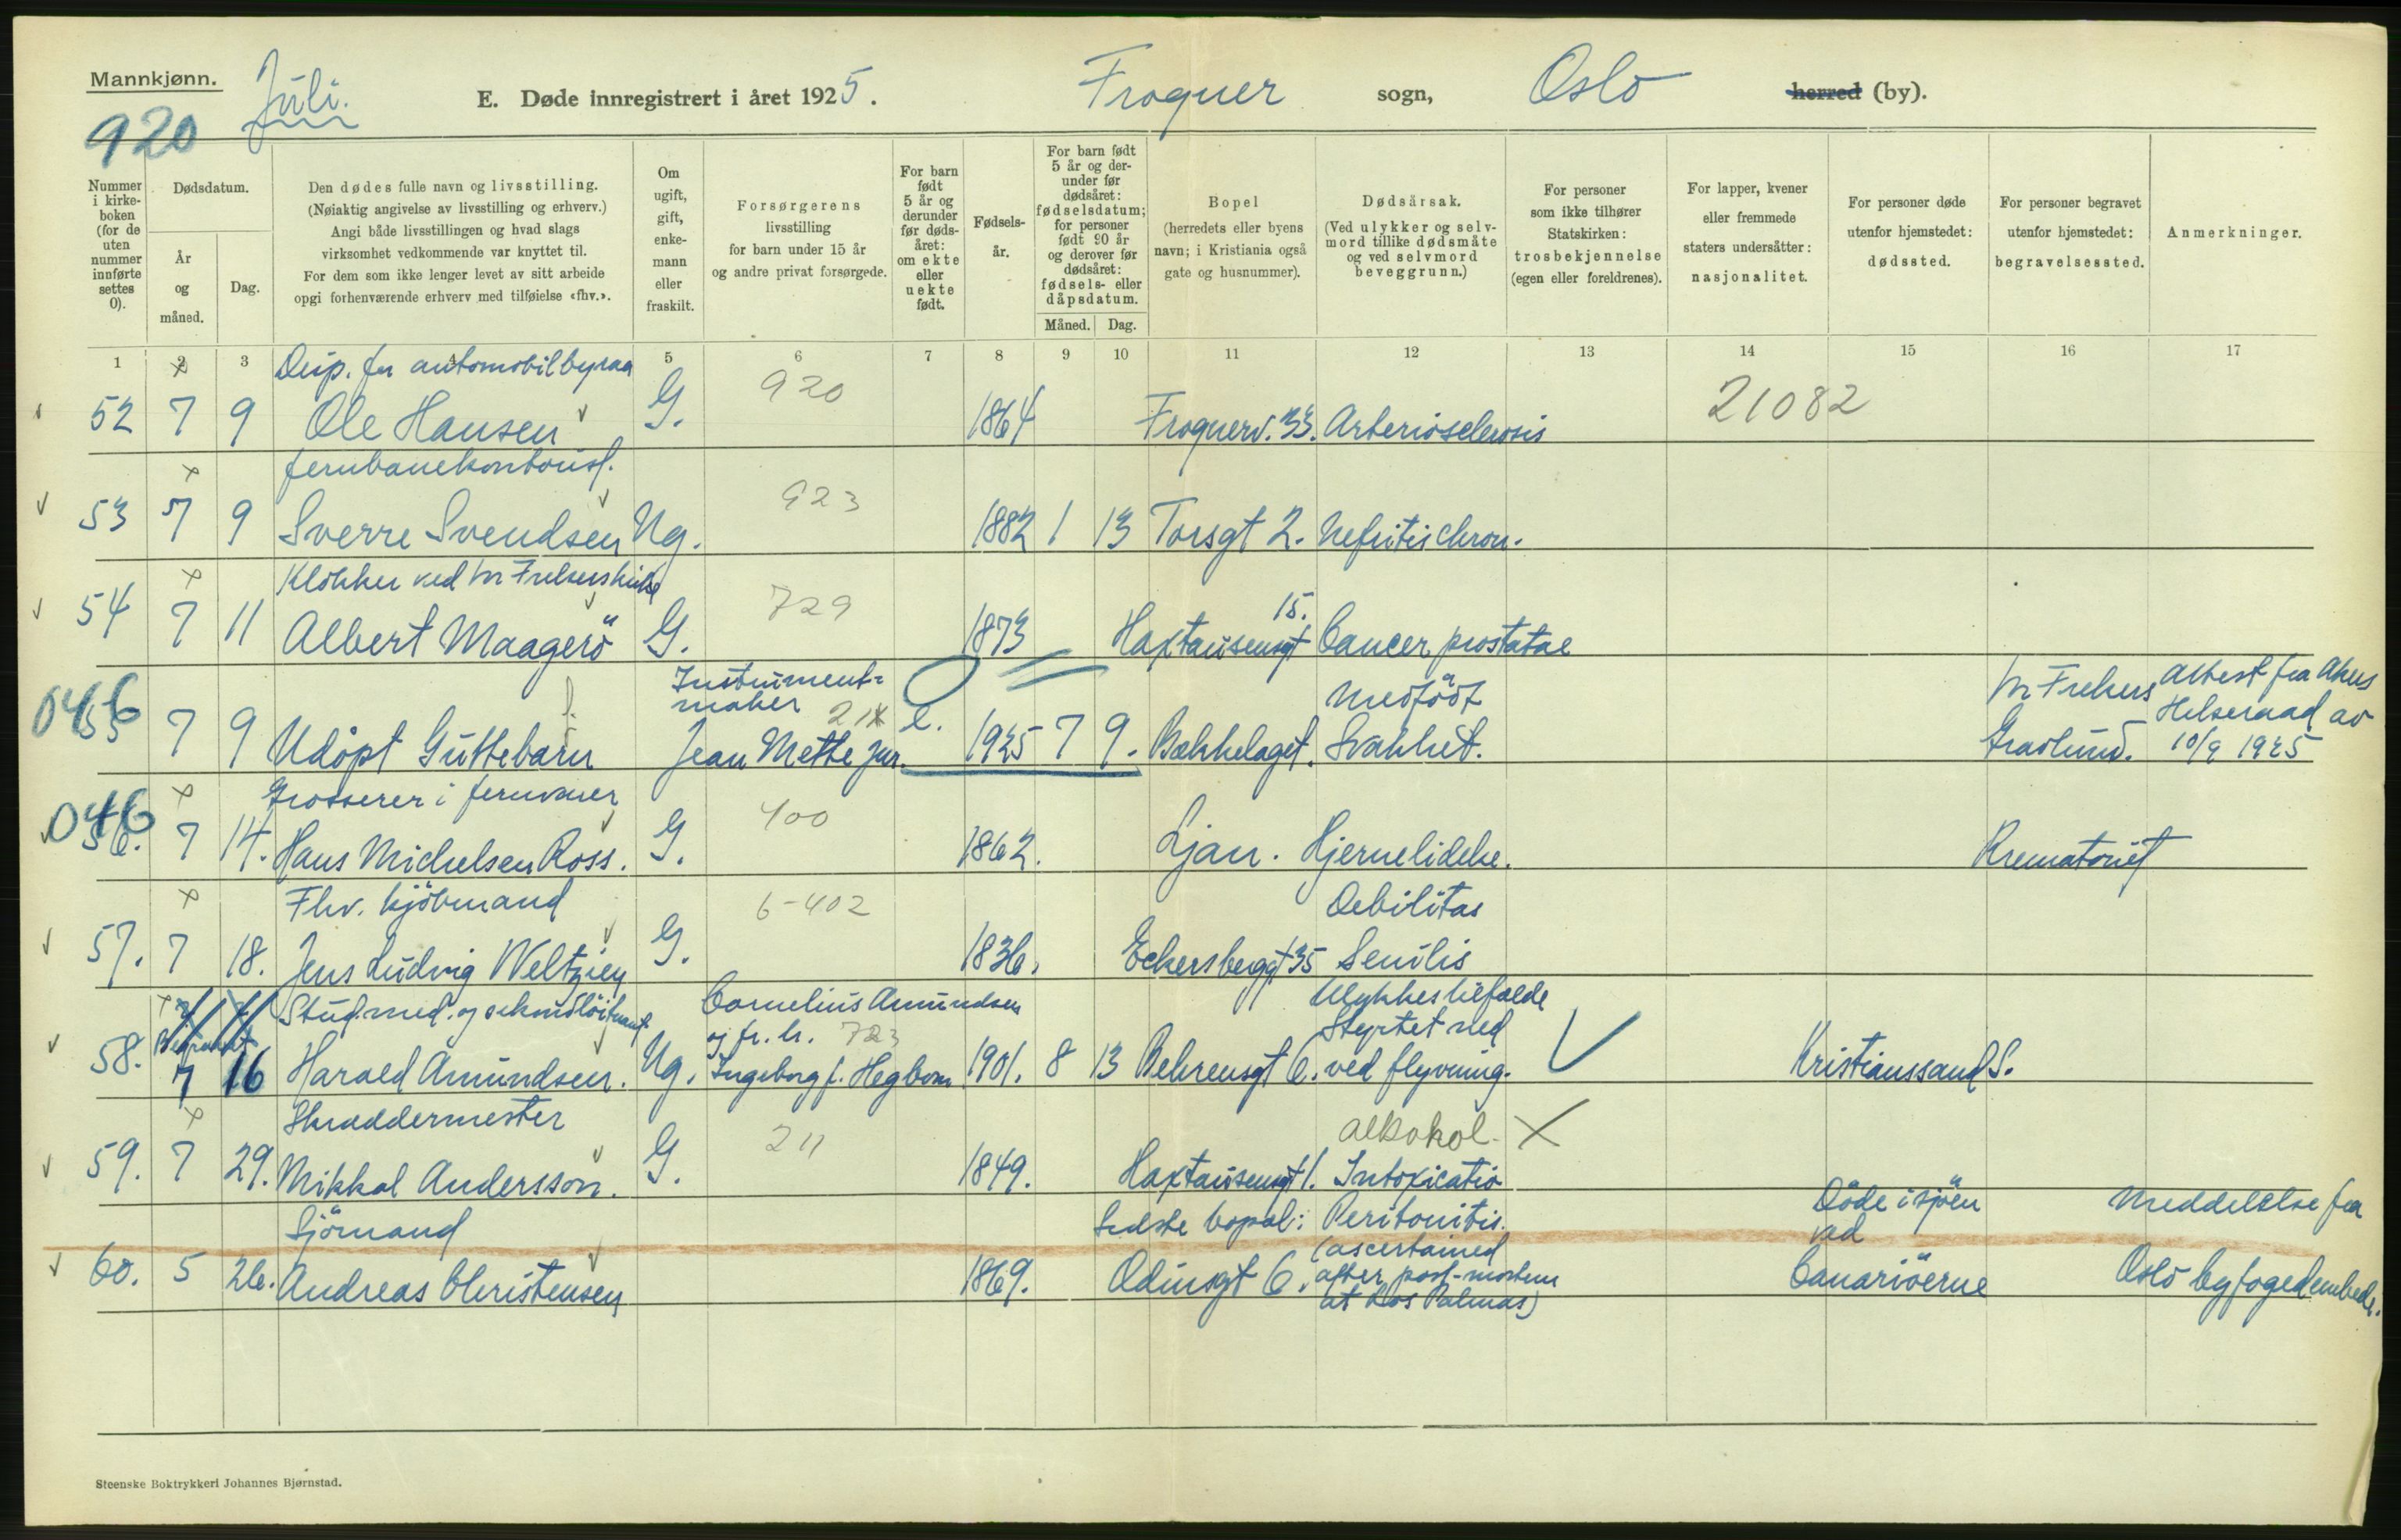 Mannkjønn.
Juli.
920
E. Døde innregistrert i året 1925.
Frogner sogn, Oslo herred (by).
Nummer i kirkeboken (for de uten nummer innførte settes 0).
Dødsdatum.
År og måned.
Dag.
Den dødes fulle navn og livsstilling.
(Nøiaktig angivelse av livsstilling og erhverv.)
Angi både livsstillingen og hvad slags
virksomhet vedkommende var knyttet til.
For dem som ikke lenger levet av sitt arbeide
opgi forhenværende erhverv med tilføielse «fhv.».
Om ugift, gift, enkemann eller fraskilt.
Forsørgerens
livsstilling
for barn under 15 år
og andre privat forsørgede.
For barn født 5 år og derunder før dødsåret: om ekte eller uekte født.
Fødselsår.
For barn født 5 år og derunder før dødsåret: fødselsdatum; for personer født 90 år og derover før dødsåret: fødsels- eller dåpsdatum.
Måned. Dag.
Bopel
(herredets eller byens
navn; i Kristiania også
gate og husnummer).
Dødsårsak.
(Ved ulykker og selvmord tillike dødsmåte og ved selvmord beveggrunn.)
For personer
som ikke tilhører
Statskirken:
trosbekjennelse
(egen eller foreldrenes).
For lapper, kvener
eller fremmede
staters undersåtter:
nasjonalitet.
For personer døde
utenfor hjemstedet:
dødssted.
For personer begravet
utenfor hjemstedet:
begravelsessted.
Anmerkninger.
1 2 3 4 5 6 7 8 9 10 11 12 13 14 15 16 17
Disp. for automobilbyraa
52 7 9 Ole Hansen G. 920 1864 Frognerv. 33. Arteriosclerosis 21082
Jernbanekontorist.
53 7 9 Sverre Svendsen Ug. 923 1882 1 13 Torsgt 2. Nefritis chron.
Klokker ved Vor Frelsers kirke
54 7 11 Albert Maagerö G. 729 1873 Haxtausensgt 15. Cancer prostatae
Instrumentmaker 21x
046
55 7 9 Udöpt Guttebarn Jean Mette jur. e. 1925 7 9. Bækkelaget. Medfödt Svakhet. Vor Frelsers Gravlund. Attest fra Akers Helseraad av 10/9 1925
046
Grosserer i jernvarer
56. 7 14. Hans Michelsen Ross. G. 400 1862. Ljan. Hjernelidelse. Krematoriet
Fhv. kjöbmand
57. 7 18. Jens Ludvig Weltzien G. 6-402 1836. Eckersbergsgt 35 Debilitas Senilis
Stud. med. og sekondlöitnant Cornelius Amundsen og fr. h. 723 Ulykkestilfælde Styrtet ned
58. Begravet 7 16 Harald Amundsen. Ug. Ingeborg f. Hegbom 1901. 8 13 Behrensgt 6. ved flyvning. Kristianssand S.
Skræddermester alkohol- X
59. 7 29. Mikkal Andersson. G. 211 1849. Haxtausensgt 1. Intoxicatio
Sjömand Sidste bopæl: Peritonitis. Döde i sjöen ved Meddelelse fra
60. 5 26. Andreas Christensen 1869. Odinsgt 6. (ascertained after post-mortem at Las Palmas) Canariöerne Oslo byfogedembede.
Steenske Boktrykkeri Johannes Bjørnstad.